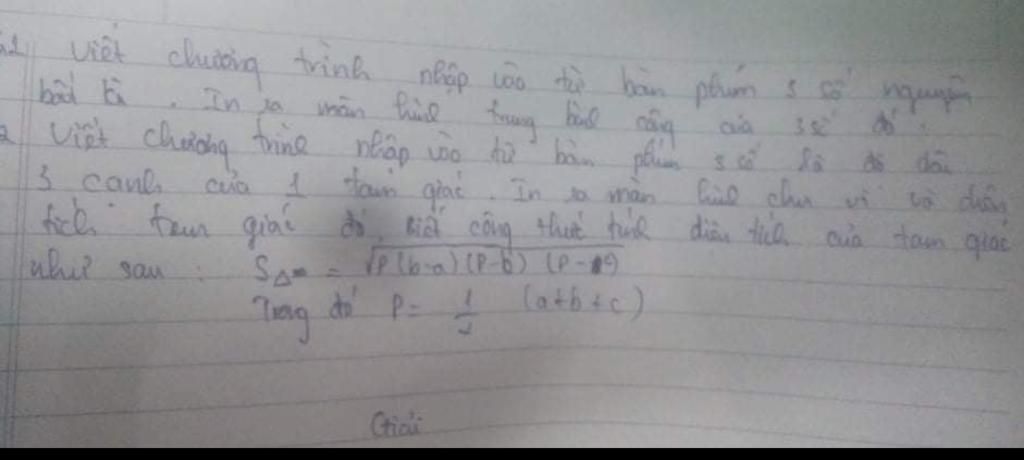 1 Viết chương trình nhập vào từ bàn phím 3 số nguyên
bất kì. In ra màn hình trung bình cộng của 3 số đó.
2 Viết chương trình nhập vào từ bàn phím 3 số là độ dài
3 cạnh của 1 tam giác. In ra màn hình chu vi và diện
tích tam giác đó. Biết công thức tính diện tích của tam giác
như sau: S△ = √P(b-a)(P-b)(P-c)
Trong đó P = 1/2 (a+b+c)
Giải